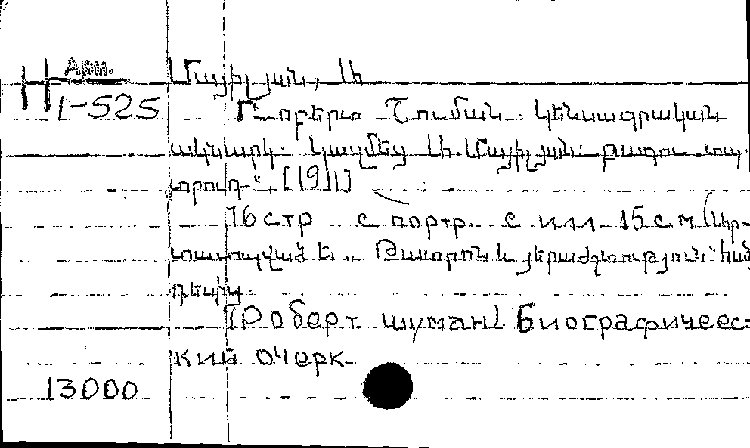 Арм.
H
1-525
Մայիլյան, Ա
Ռոբերտ Շուման. կենսագրական
ակնարկ. կազմեց Ա. Մայիլյան. բագու տպ.
[1911]
16 стр с портр. с илл. 15 см (Ար-
տատպված է "Թատրոն և յերաժշտություն" հան
դեսից.
[Роберт шуман] Биографичес-
кий очерк
13000